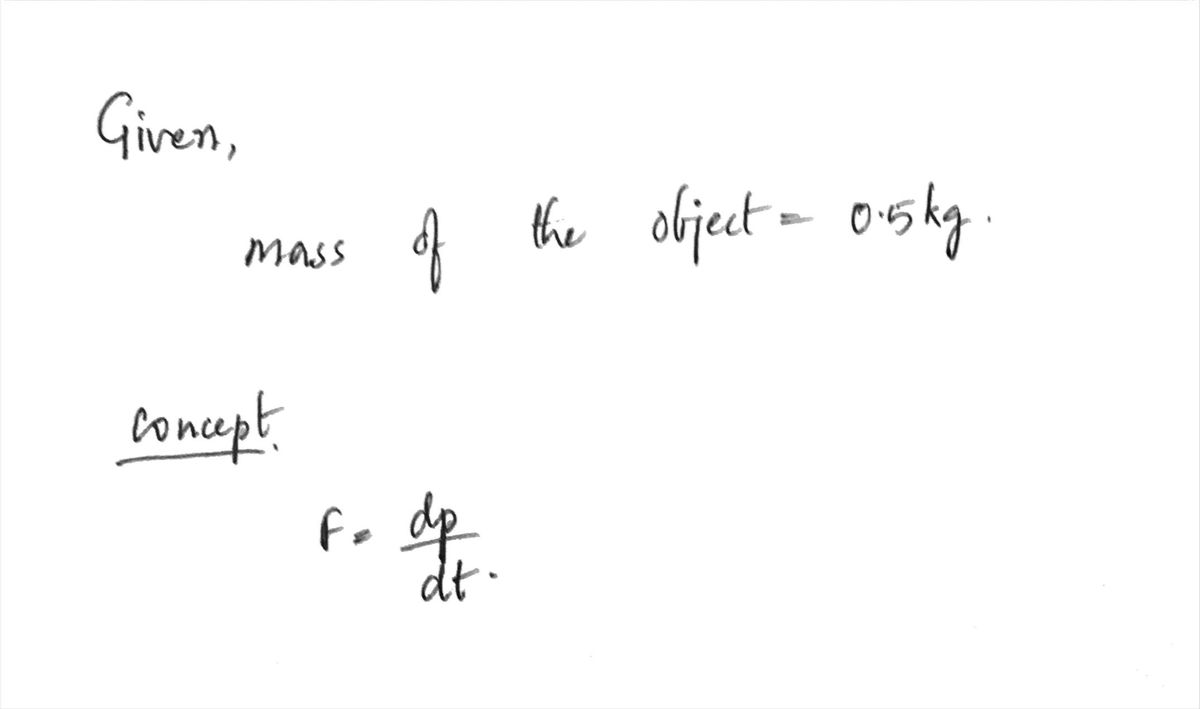 Given,
mass of the object = 0.5kg.
concept.
F = dp
dt.